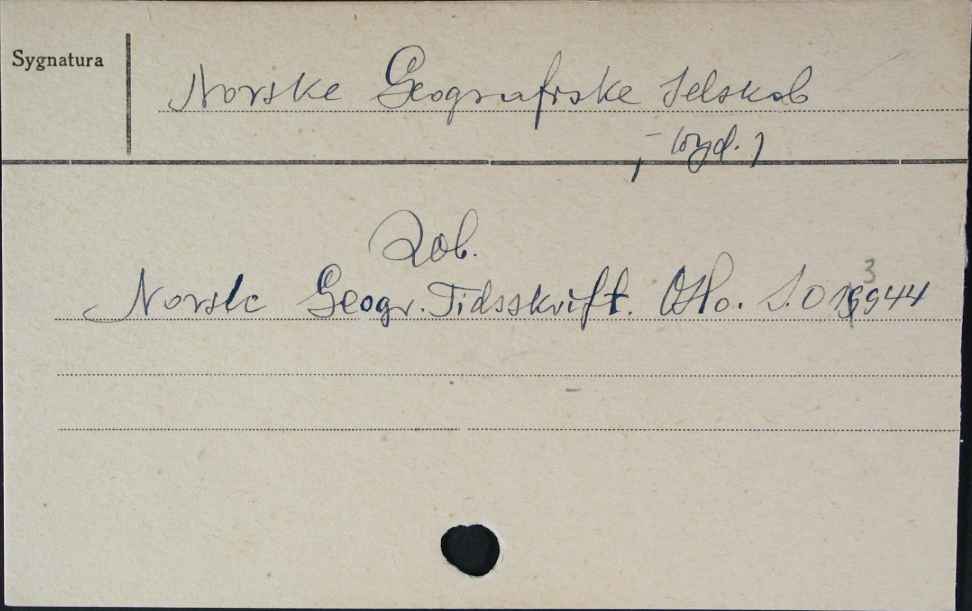 Sygnatura
Norske Geografiske Selskab
, (wyd.)
Zob.
Norsk Geogr. Tidsskrift. Oslo. S.O
3